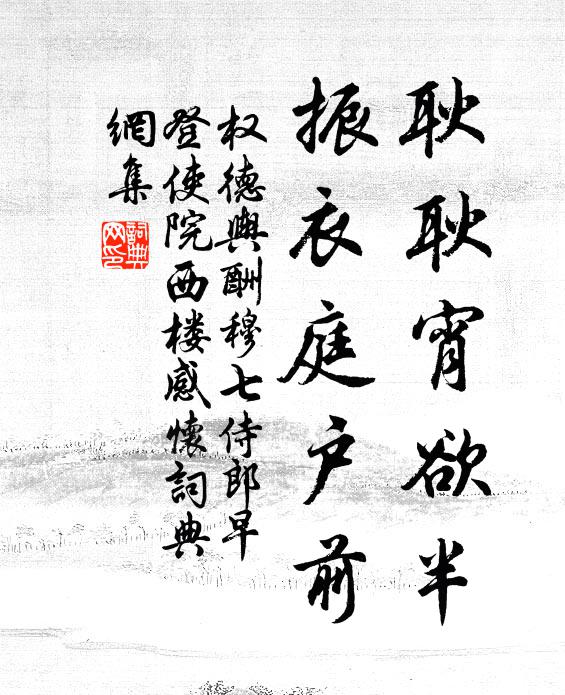 耿耿宵欲半
振衣庭户前
权德舆酬穆七侍郎早
登使院西楼感怀詞典
網集
詞典
网印